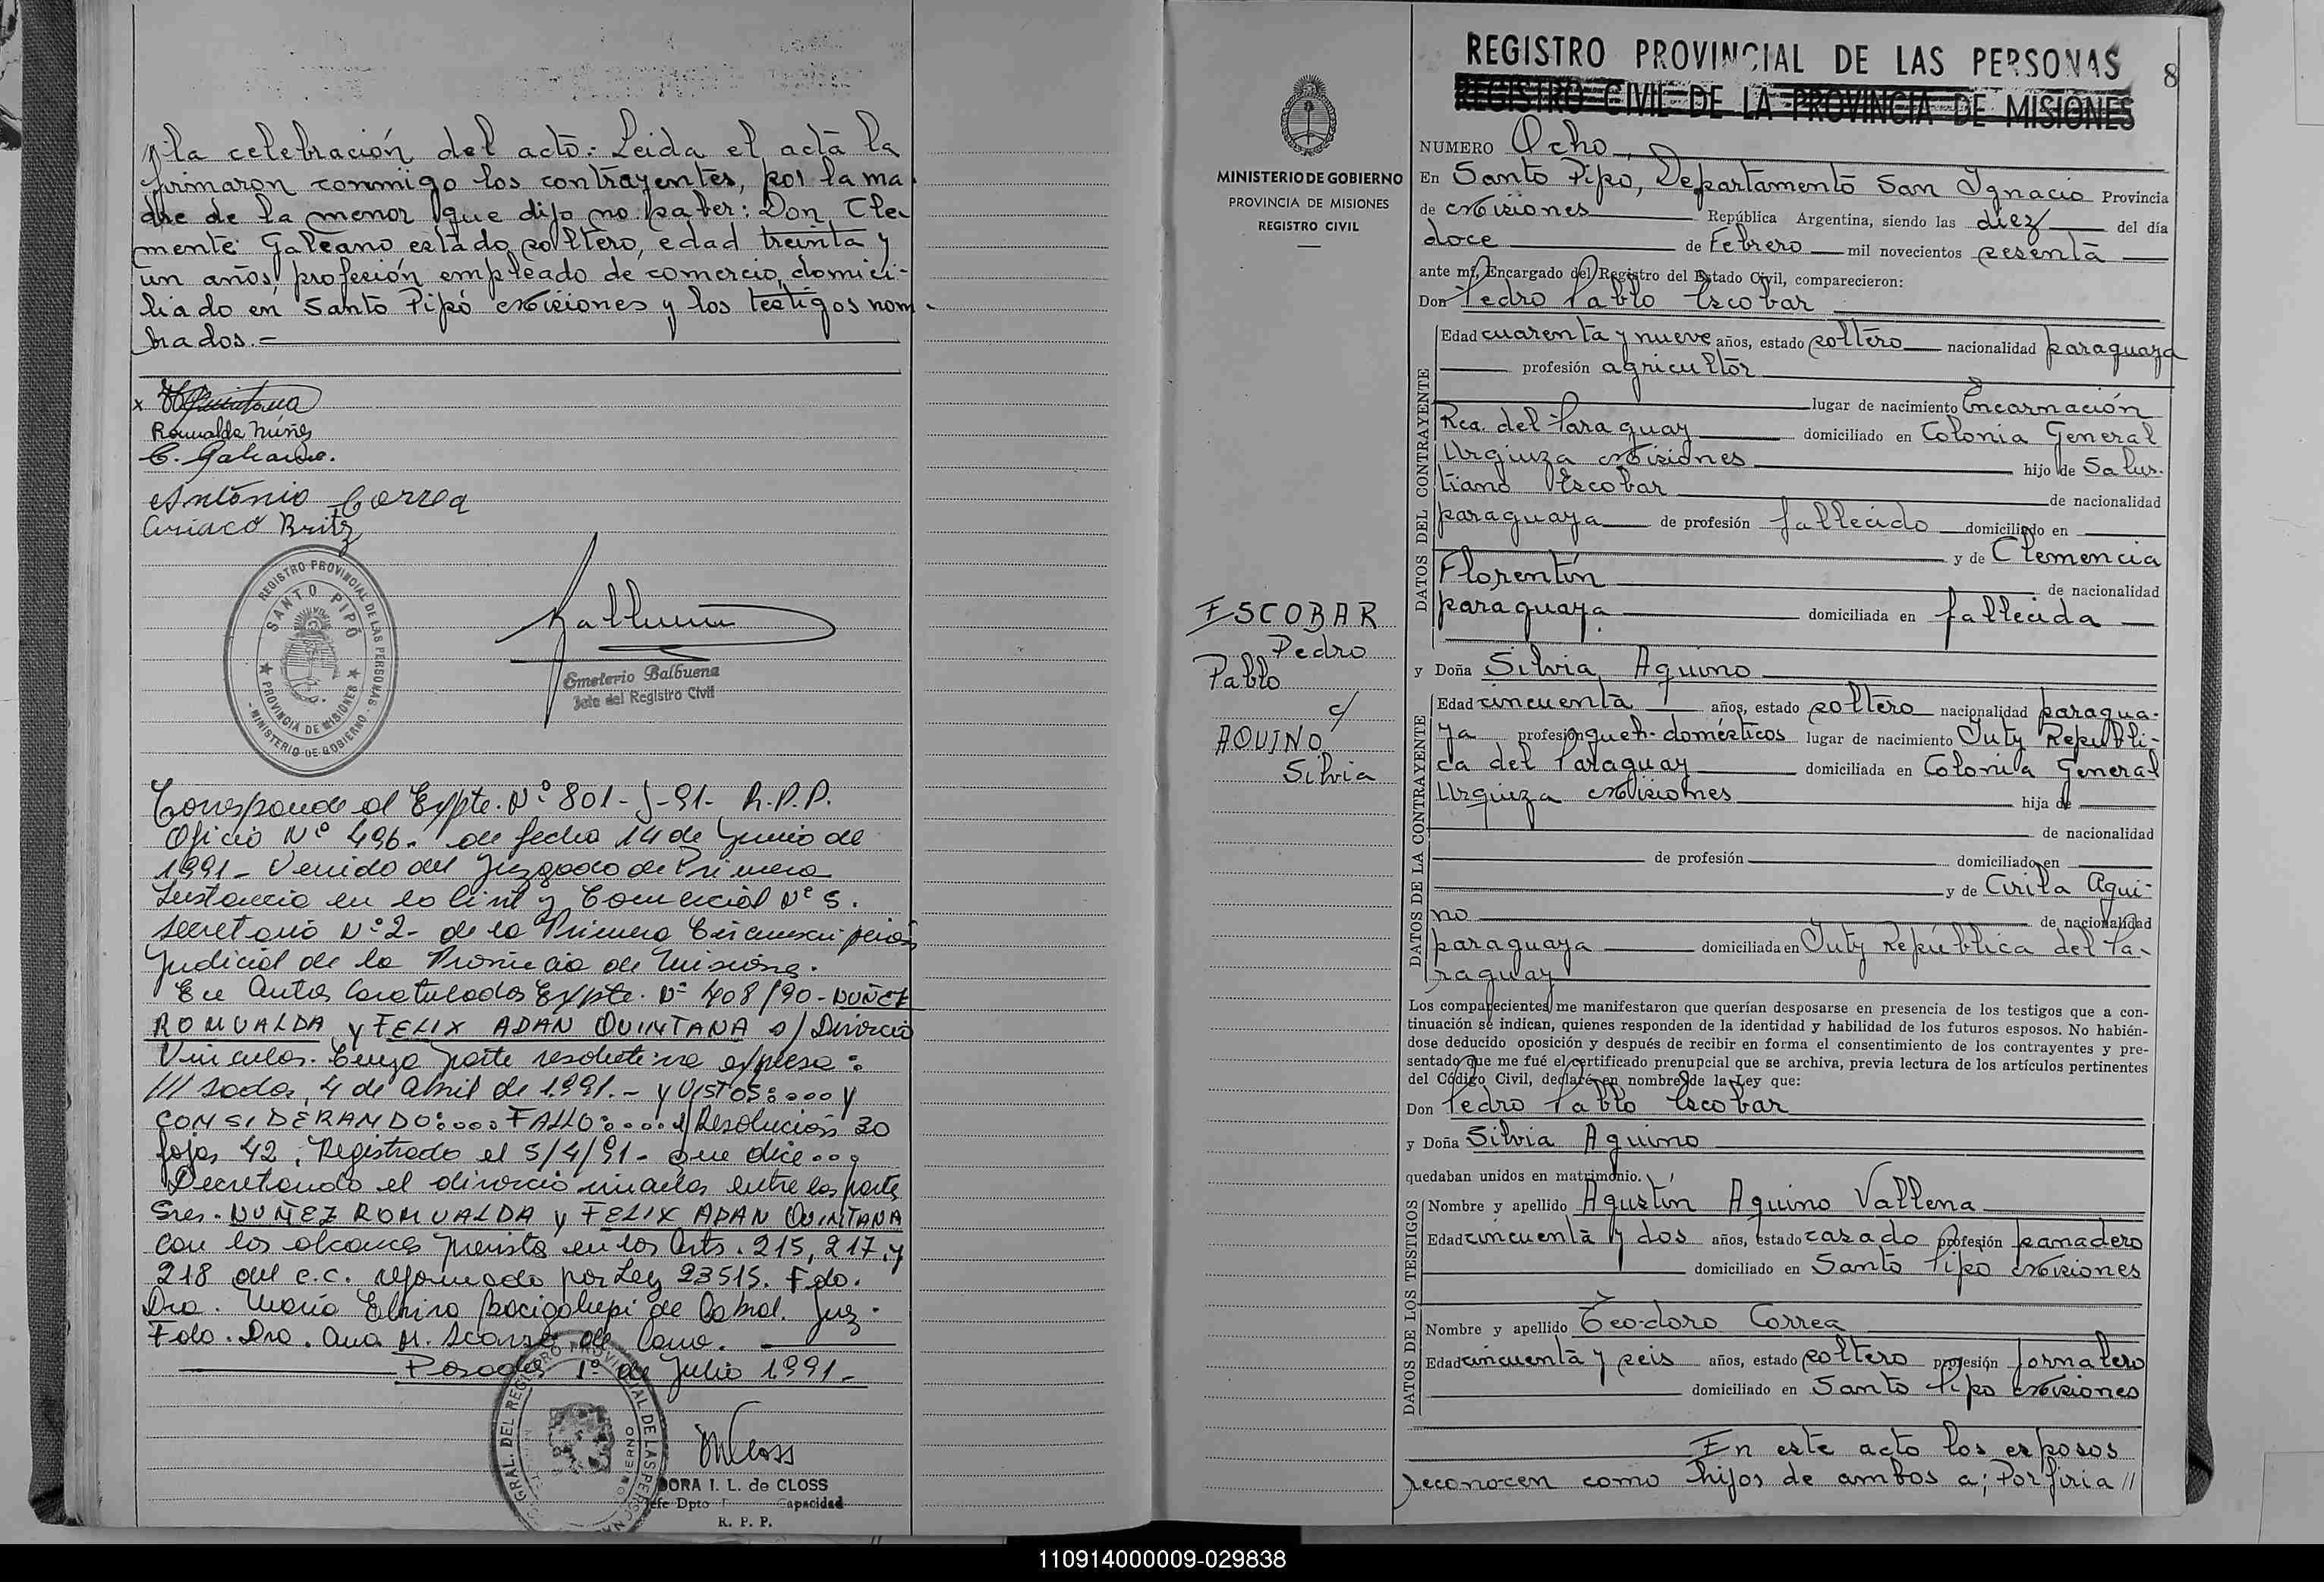 la celebración del acto. Leida el acta la
firmaron conmigo los contrayentes, por la ma-
dre de la menor que dijo no saber: Don Cle-
mente Galeano estado soltero, edad treinta y
un años, profesión empleado de comercio, domici-
liado en Santo Pipó Misiones y los testigos nom-
brados.-
x
Romualda Núñez
C. Galeano.
Antonio Correa
Ciriaco Britez
REGISTRO PROVINCIAL DE LAS PERSONAS - MINISTERIO DE GOBIERNO -
SANTO PIPÓ
PROVINCIA DE MISIONES
Emeterio Balbuena
Jefe del Registro Civil
Corresponde al Expte. Nº 801-J-91- R.P.P.
Oficio Nº 496. de fecha 14 de Junio de
1991- Venido del Juzgado de Primera
Instancia en lo Civil y Comercial Nº 5.
Secretaria Nº 2- de la Primera Circunscripción
Judicial de la Provincia de Misiones.
En Autos Caratulados Expte. Nº 408/90- NUÑEZ
ROMUALDA y FELIX ADAN QUINTANA s/ Divorcio
Vincular. Cuya parte resolutiva expresa:
///sadas, 4 de Abril de 1991.- y VISTOS:... y
CONSIDERANDO:... FALLO:... Resolución 30
fojas 42, Registrado el 5/4/91- que dice...
Decretando el divorcio vincular entre las partes
Sres. NUÑEZ ROMUALDA y FELIX ADAN QUINTANA
con los alcances previstos en los Arts. 215, 217 y
218 del C.C. reformado por Ley 23515. Fdo.
Dra. María Elvira de Cabral. Juez.
Fdo. Dra. Ana M. de Cano.
Posadas 1º de Julio 1991.-
DORA I. L. de CLOSS
Jefe Dpto Capacidad
R. P. P.
REGISTRO PROVINCIAL DE LAS PERSONAS
8
REGISTRO CIVIL DE LA PROVINCIA DE MISIONES
MINISTERIO DE GOBIERNO
PROVINCIA DE MISIONES
REGISTRO CIVIL
ESCOBAR
Pedro
Pablo
c/
AQUINO
Silvia
NUMERO Ocho
En Santo Pipo, Departamento San Ignacio Provincia
de Misiones República Argentina, siendo las diez del día
doce de Febrero mil novecientos sesenta
ante mí, Encargado del Registro del Estado Civil, comparecieron:
Don Pedro Pablo Escobar
DATOS DEL CONTRAYENTE
Edad cuarenta y nueve años, estado soltero nacionalidad paraguaya
profesión agricultor
lugar de nacimiento Encarnación
Rca. del Paraguay domiciliado en Colonia General
Urquiza Misiones hijo de Salus-
tiano Escobar de nacionalidad
paraguaya de profesión fallecido domiciliado en
y de Clemencia
Florentín de nacionalidad
paraguaya domiciliada en fallecida
y Doña Silvia Aquino
DATOS DE LA CONTRAYENTE
Edad cincuenta años, estado soltero nacionalidad paragua-
ya profesión queh. domésticos lugar de nacimiento Yuty Republi-
ca del Paraguay domiciliada en Colonia General
Urquiza Misiones hija de
de nacionalidad
de profesión domiciliado en
y de Cirila Aqui-
no de nacionalidad
paraguaya domiciliada en Yuty República del Pa-
raguay
Los comparecientes me manifestaron que querían desposarse en presencia de los testigos que a con-
tinuación se indican, quienes responden de la identidad y habilidad de los futuros esposos. No habién-
dose deducido oposición y después de recibir en forma el consentimiento de los contrayentes y pre-
sentado que me fué el certificado prenupcial que se archiva, previa lectura de los artículos pertinentes
del Código Civil, declaré en nombre de la Ley que:
Don Pedro Pablo Escobar
y Doña Silvia Aquino
quedaban unidos en matrimonio.
DATOS DE LOS TESTIGOS
Nombre y apellido Agustín Aquino Vallena
Edad cincuenta y dos años, estado casado profesión panadero
domiciliado en Santo Pipo Misiones
Nombre y apellido Teodoro Correa
Edad cincuenta y seis años, estado soltero profesión jornalero
domiciliado en Santo Pipo Misiones
En este acto los esposos
reconocen como hijos de ambos a; Porfiria //
110914000009-029838